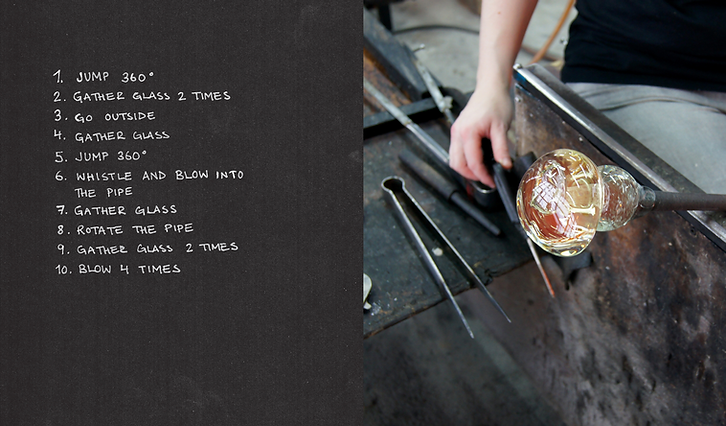 1. JUMP 360°
2. GATHER GLASS 2 TIMES
3. GO OUTSIDE
4. GATHER GLASS
5. JUMP 360°
6. WHISTLE AND BLOW INTO
THE PIPE
7. GATHER GLASS
8. ROTATE THE PIPE
9. GATHER GLASS 2 TIMES
10. BLOW 4 TIMES